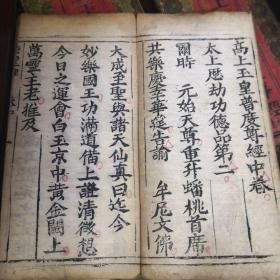 高上玉皇普度尊經中卷
太上歷劫功德品第二
爾時　元始天尊重升蟠桃首席
共樂慶
告諭　牟尼文佛
大成至聖與諸天仙真曰迄今
妙樂國王功滿道備上證清微想
今日之運會白玉京中黃金闕上
萬靈主宰推及